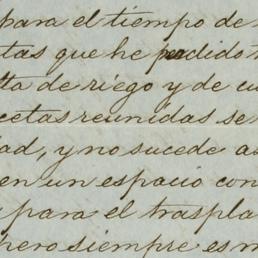 para el tiempo de
tas que he perdido
ta de riego y de cu
cetas reunidas se
dad, y no sucede as
en un espacio con
para el traspla
pero siempre es m